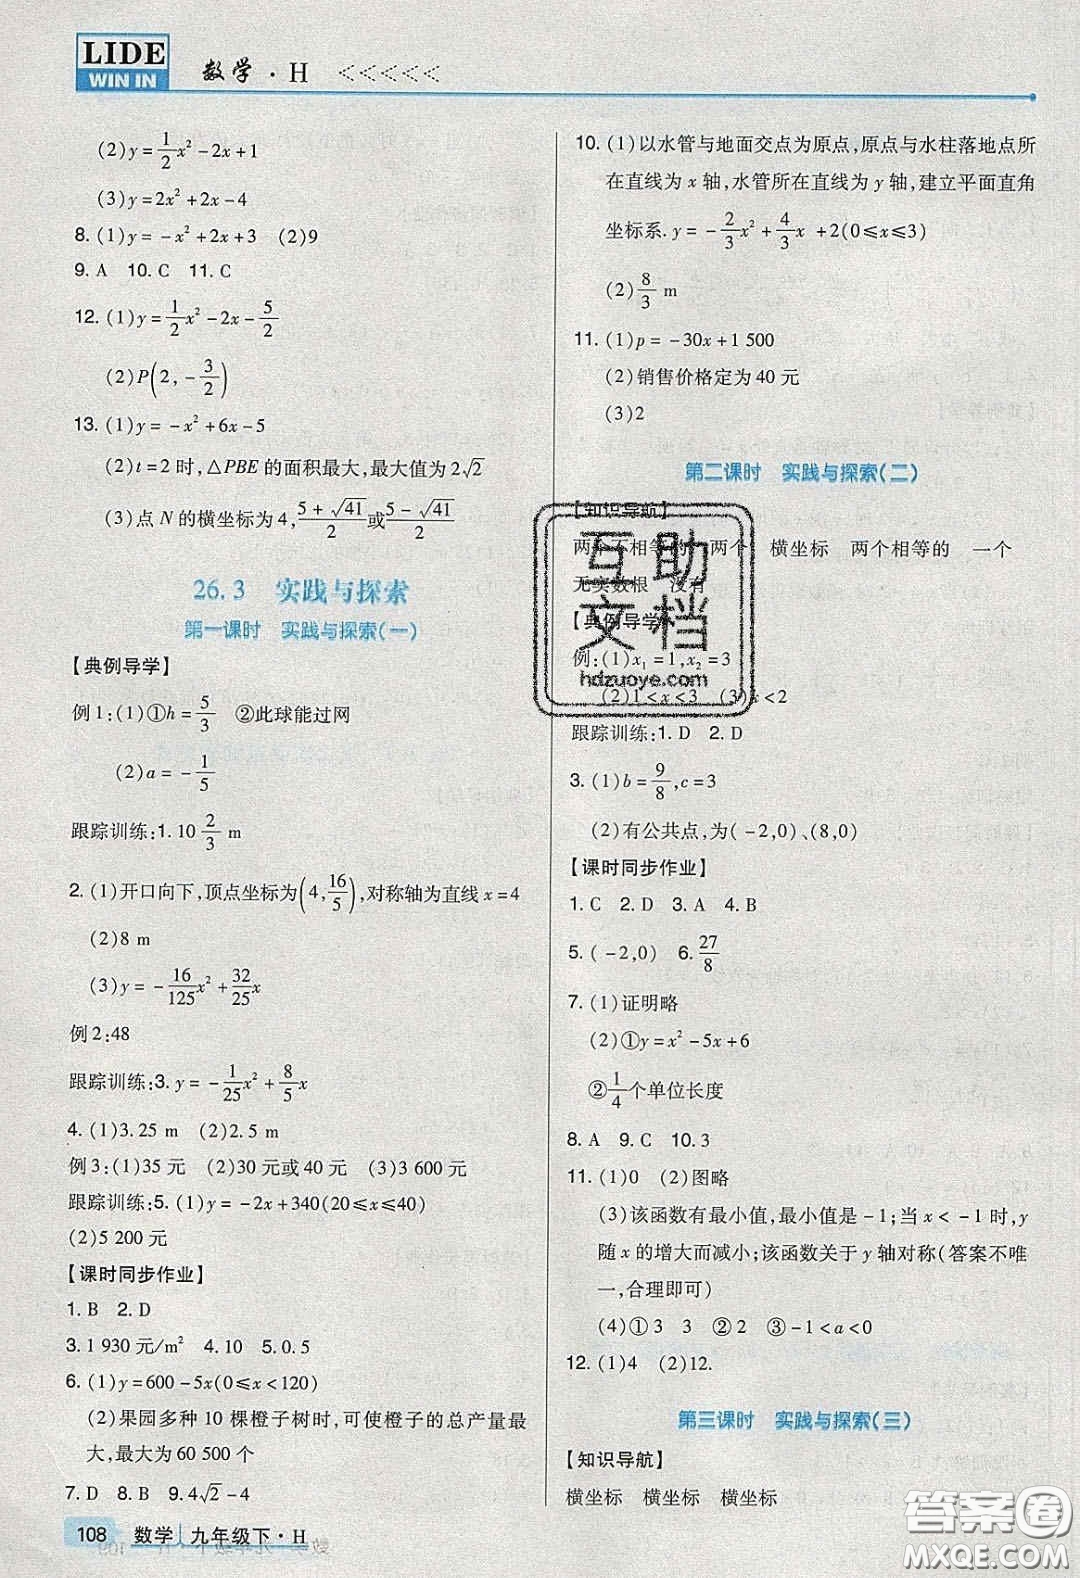 LIDE
WIN IN
数学·H <<<<<
(2)y=1/2x²-2x+1
(3)y=2x²+2x-4
8. (1)y=-x²+2x+3 (2)9
9. A 10. C 11. C
12. (1)y=1/2x²-2x-5/2
(2)P(2,-3/2)
13. (1)y=-x²+6x-5
(2)t=2时,△PBE的面积最大,最大值为2√2
(3)点N的横坐标为4,(5+√41)/2或(5-√41)/2
26.3 实践与探索
第一课时 实践与探索(一)
【典例导学】
例1:(1)①h=5/3 ②此球能过网
(2)a=-1/5
跟踪训练:1. 10 2/3 m
2. (1)开口向下,顶点坐标为(4,16/5),对称轴为直线x=4
(2)8 m
(3)y=-16/125x²+32/25x
例2:48
跟踪训练:3. y=-1/25x²+8/5x
4. (1)3.25 m (2)2.5 m
例3:(1)35元 (2)30元或40元 (3)3 600元
跟踪训练:5. (1)y=-2x+340(20≤x≤40)
(2)5 200元
【课时同步作业】
1. B 2. D
3. 1 930元/m² 4. 10 5. 0.5
6. (1)y=600-5x(0≤x<120)
(2)果园多种10棵橙子树时,可使橙子的总产量最
大,最大为60 500个
7. D 8. B 9. 4√2-4
108 数学 九年级下·H
10. (1)以水管与地面交点为原点,原点与水柱落地点所
在直线为x轴,水管所在直线为y轴,建立平面直角
坐标系. y=-2/3x²+4/3x+2(0≤x≤3)
(2)8/3 m
11. (1)p=-30x+1 500
(2)销售价格定为40元
(3)2
第二课时 实践与探索(二)
【知识导航】
两个不相等的 两个 横坐标 两个相等的 一个
无实数根 没有
【典例导学】
例:(1)x₁=1,x₂=3
(2)1<x<3 (3)x<2
跟踪训练:1. D 2. D
3. (1)b=9/8,c=3
(2)有公共点,为(-2,0)、(8,0)
【课时同步作业】
1. C 2. D 3. A 4. B
5. (-2,0) 6. 27/8
7. (1)证明略
(2)①y=x²-5x+6
②1/4个单位长度
8. A 9. C 10. 3
11. (1)0 (2)图略
(3)该函数有最小值,最小值是-1;当x<-1时,y
随x的增大而减小;该函数关于y轴对称(答案不唯
一,合理即可)
(4)①3 3 ②2 ③-1<a<0
12. (1)4 (2)12.
第三课时 实践与探索(三)
【知识导航】
横坐标 横坐标 横坐标
互助
文档
hdzuoye.com
答案圈
MXQE.COM